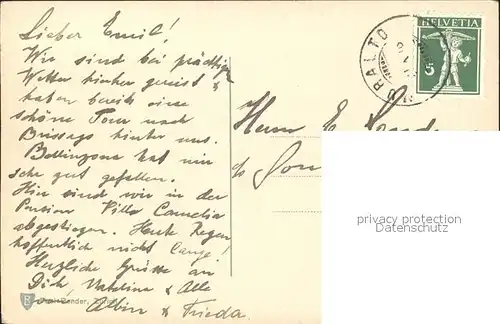 Lieber Emil!
Wir sind bei prächtigem
Wetter hinter gereist &
haben bereits eine
schöne Tour nach
Brissago hinter uns.
Bellinzona hat mir
sehr gut gefallen.
Hier sind wir in der
Pension Villa Camelia
abgestiegen. Heute Regen
hoffentlich nicht lange!
Herzliche Grüsse an
Dich, & Alle
Albin & Frieda.
HELVETIA
5
MURALTO
Herrn E.
c/o
privacy protection
Datenschutz